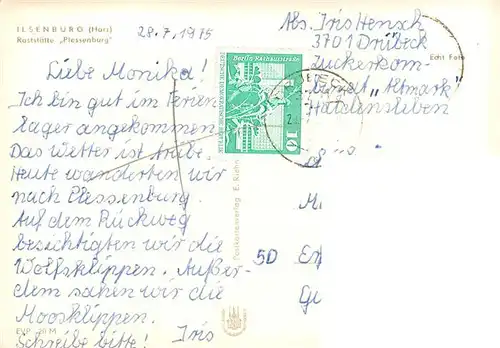 ILSENBURG (Harz)
Raststätte „Plessenburg"
28.7.1975
Liebe Monika!
Ich bin gut im Ferien
lager angekommen.
Das Wetter ist trübe.
Heute wanderten wir
nach Plessenburg.
Auf dem Rückweg
besichtigten wir die
Wolfsklippen. Außer-
dem sahen wir die
Moosklippen.
Schreibe bitte! Iris
EVP -,20 M
Abs. Iris Hensch
3701 Drübeck
Zuckerkom-
binat „Altmark"
Haldensleben
Echt Foto
Berlin, Rathausstraße
10
Postkartenverlag E. Riehn
5D